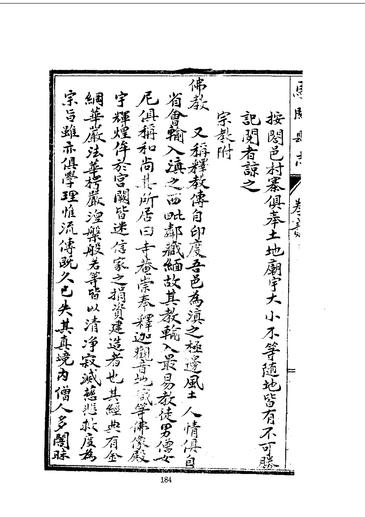 馬關縣志 卷之
按閤邑村寨俱奉土地廟宇大小不等隨地皆有不可勝
記閱者諒之
宗教附
佛教 又稱釋教傳自印度吾邑為滇之極邊風土人情俱自
省會輸入滇之西毗鄰藏緬故其教輸入最易教徒男僧女
尼俱稱和尚其所居曰寺菴崇奉釋迦觀音地藏等佛像殿
宇輝煌侔於宮闕皆迷信家之捐資建造者也其經典有金
綱華嚴法華楞嚴湼槃般若等皆以清净寂滅慈悲救度為
宗旨雖亦俱學理惟流傳既久已失其真境內僧人多闇昧
184